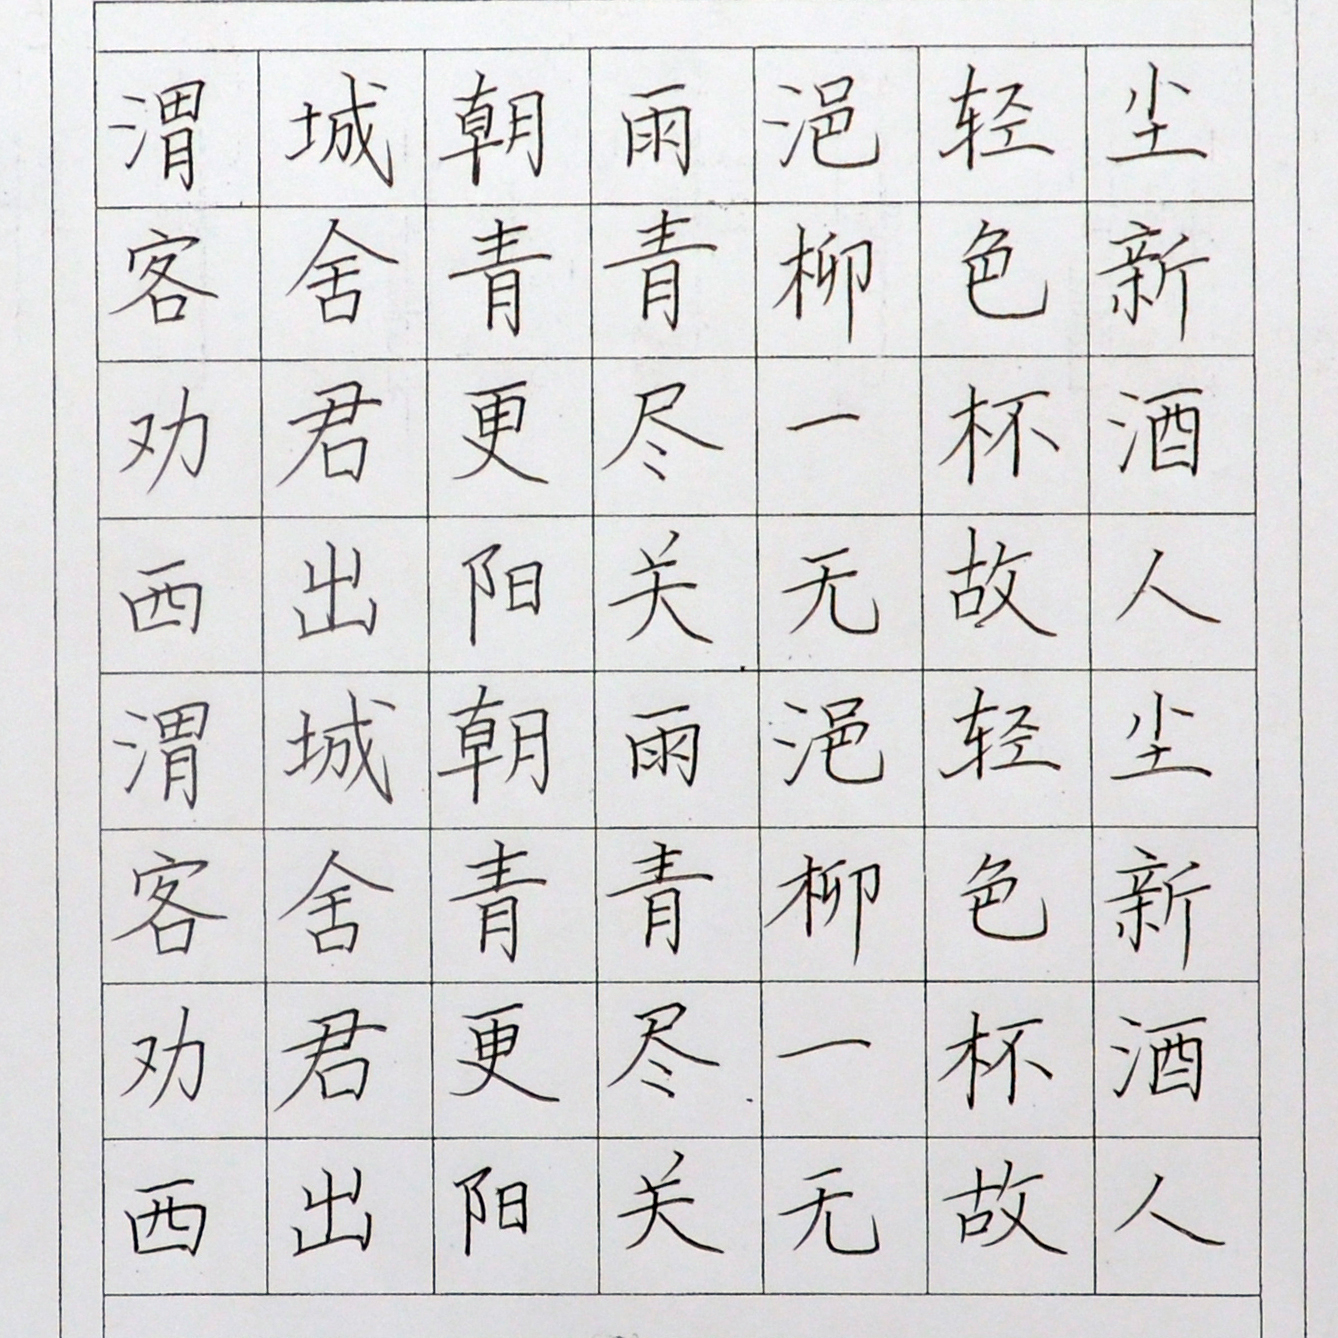 渭城朝雨浥轻尘
客舍青青柳色新
劝君更尽一杯酒
西出阳关无故人
渭城朝雨浥轻尘
客舍青青柳色新
劝君更尽一杯酒
西出阳关无故人